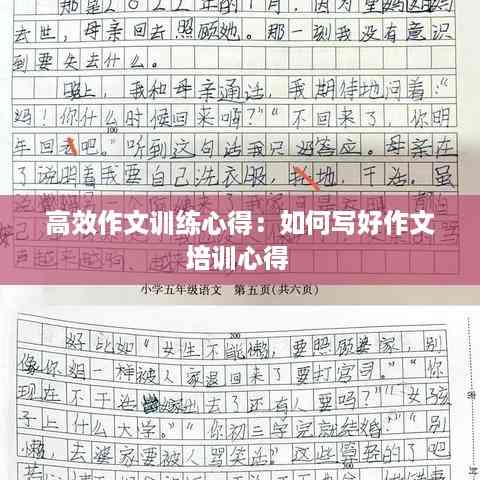 那是2022年的1月，因为
去世，母亲回去照顾她。那一刻我没有意识
到要失去什么。
晚上，我和母亲通话，我期待地问着：“
妈！你什么时候回来啊？”“不回来了，你明
100
年回去吧。”听到这句话我只好答应。母亲在
了说明着我要自己洗衣服，拖地，干活。虽
高效作文训练心得：如何写好作文
培训心得
小学五年级语文 第五页(共六页)
200
好比如“女生不能懒，要照顾婆家，别
像你姐一样被人家退回来了要打官司。”“你
现在不干活嫁出去了还有人要吗？”“女孩
子上什么大学。”“你初三学完就结婚！”“别
懒，去婆家要被人骂笑话。”这些算轻的了吧
300